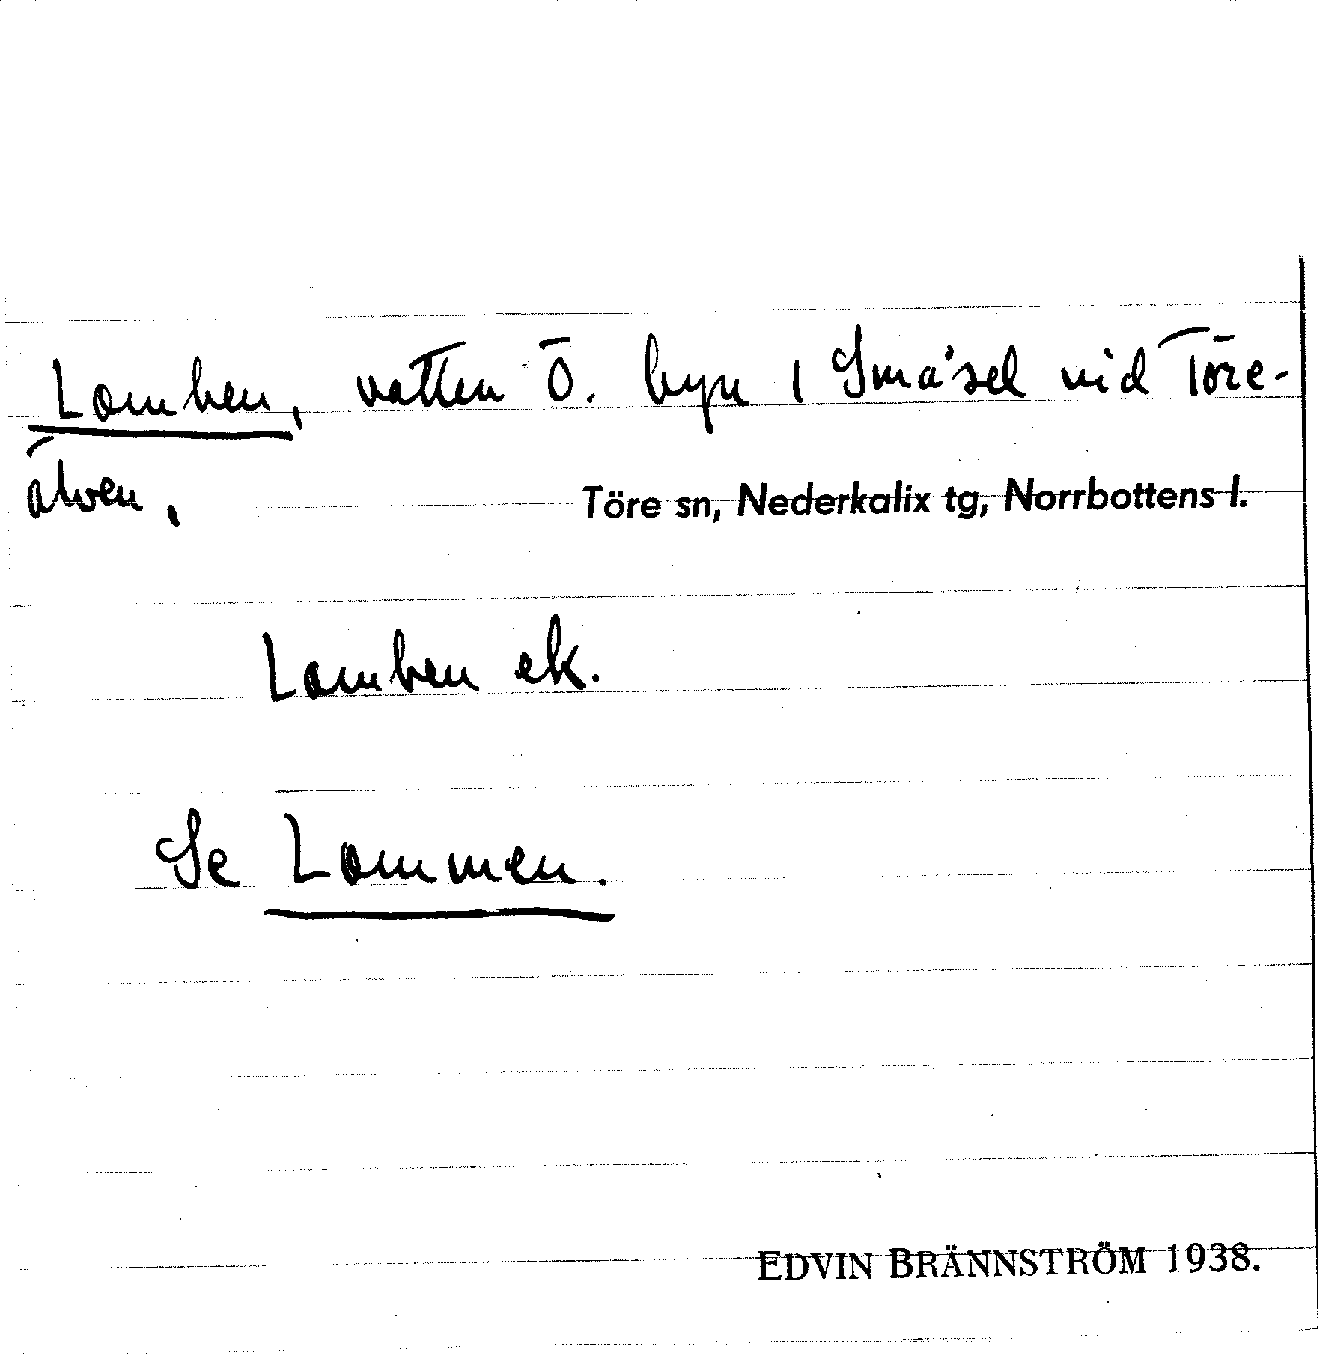 Lomben, vatten Ö. byn i Småsel vid Töre-
älven,
Töre sn, Nederkalix tg, Norrbottens l.
Lomben ek.
Se Lommen.
EDVIN BRÄNNSTRÖM 1938.